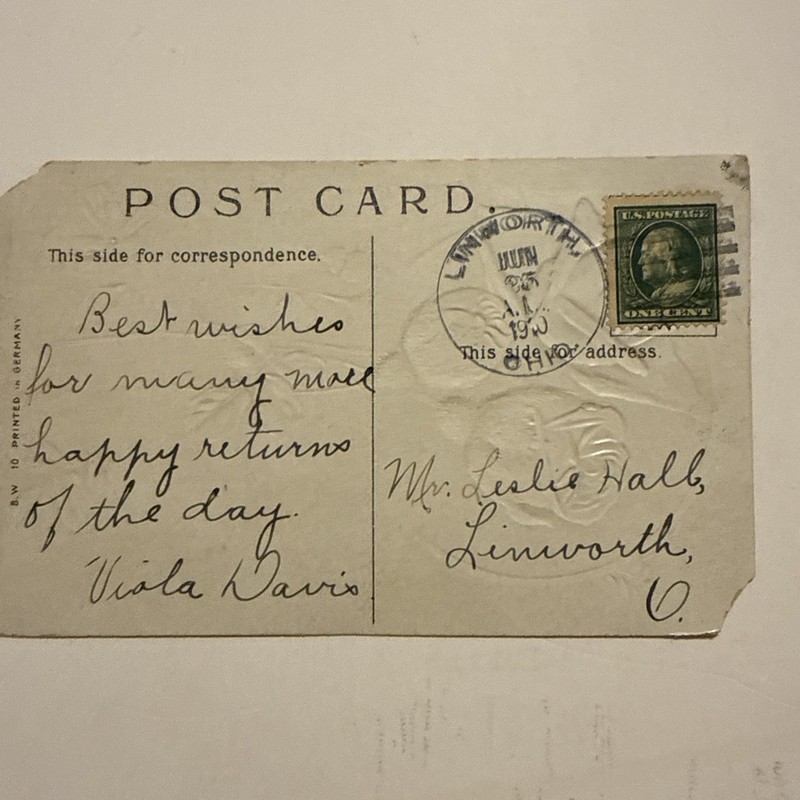 POST CARD.
This side for correspondence.
LINWORTH,
JUN
25
1910
OHIO.
U.S. POSTAGE
ONE CENT
This side for address.
Best wishes
for many more
happy returns
of the day.
Viola Davis
Mr. Leslie Hall,
Linworth,
O.
B.W 10 PRINTED IN GERMANY